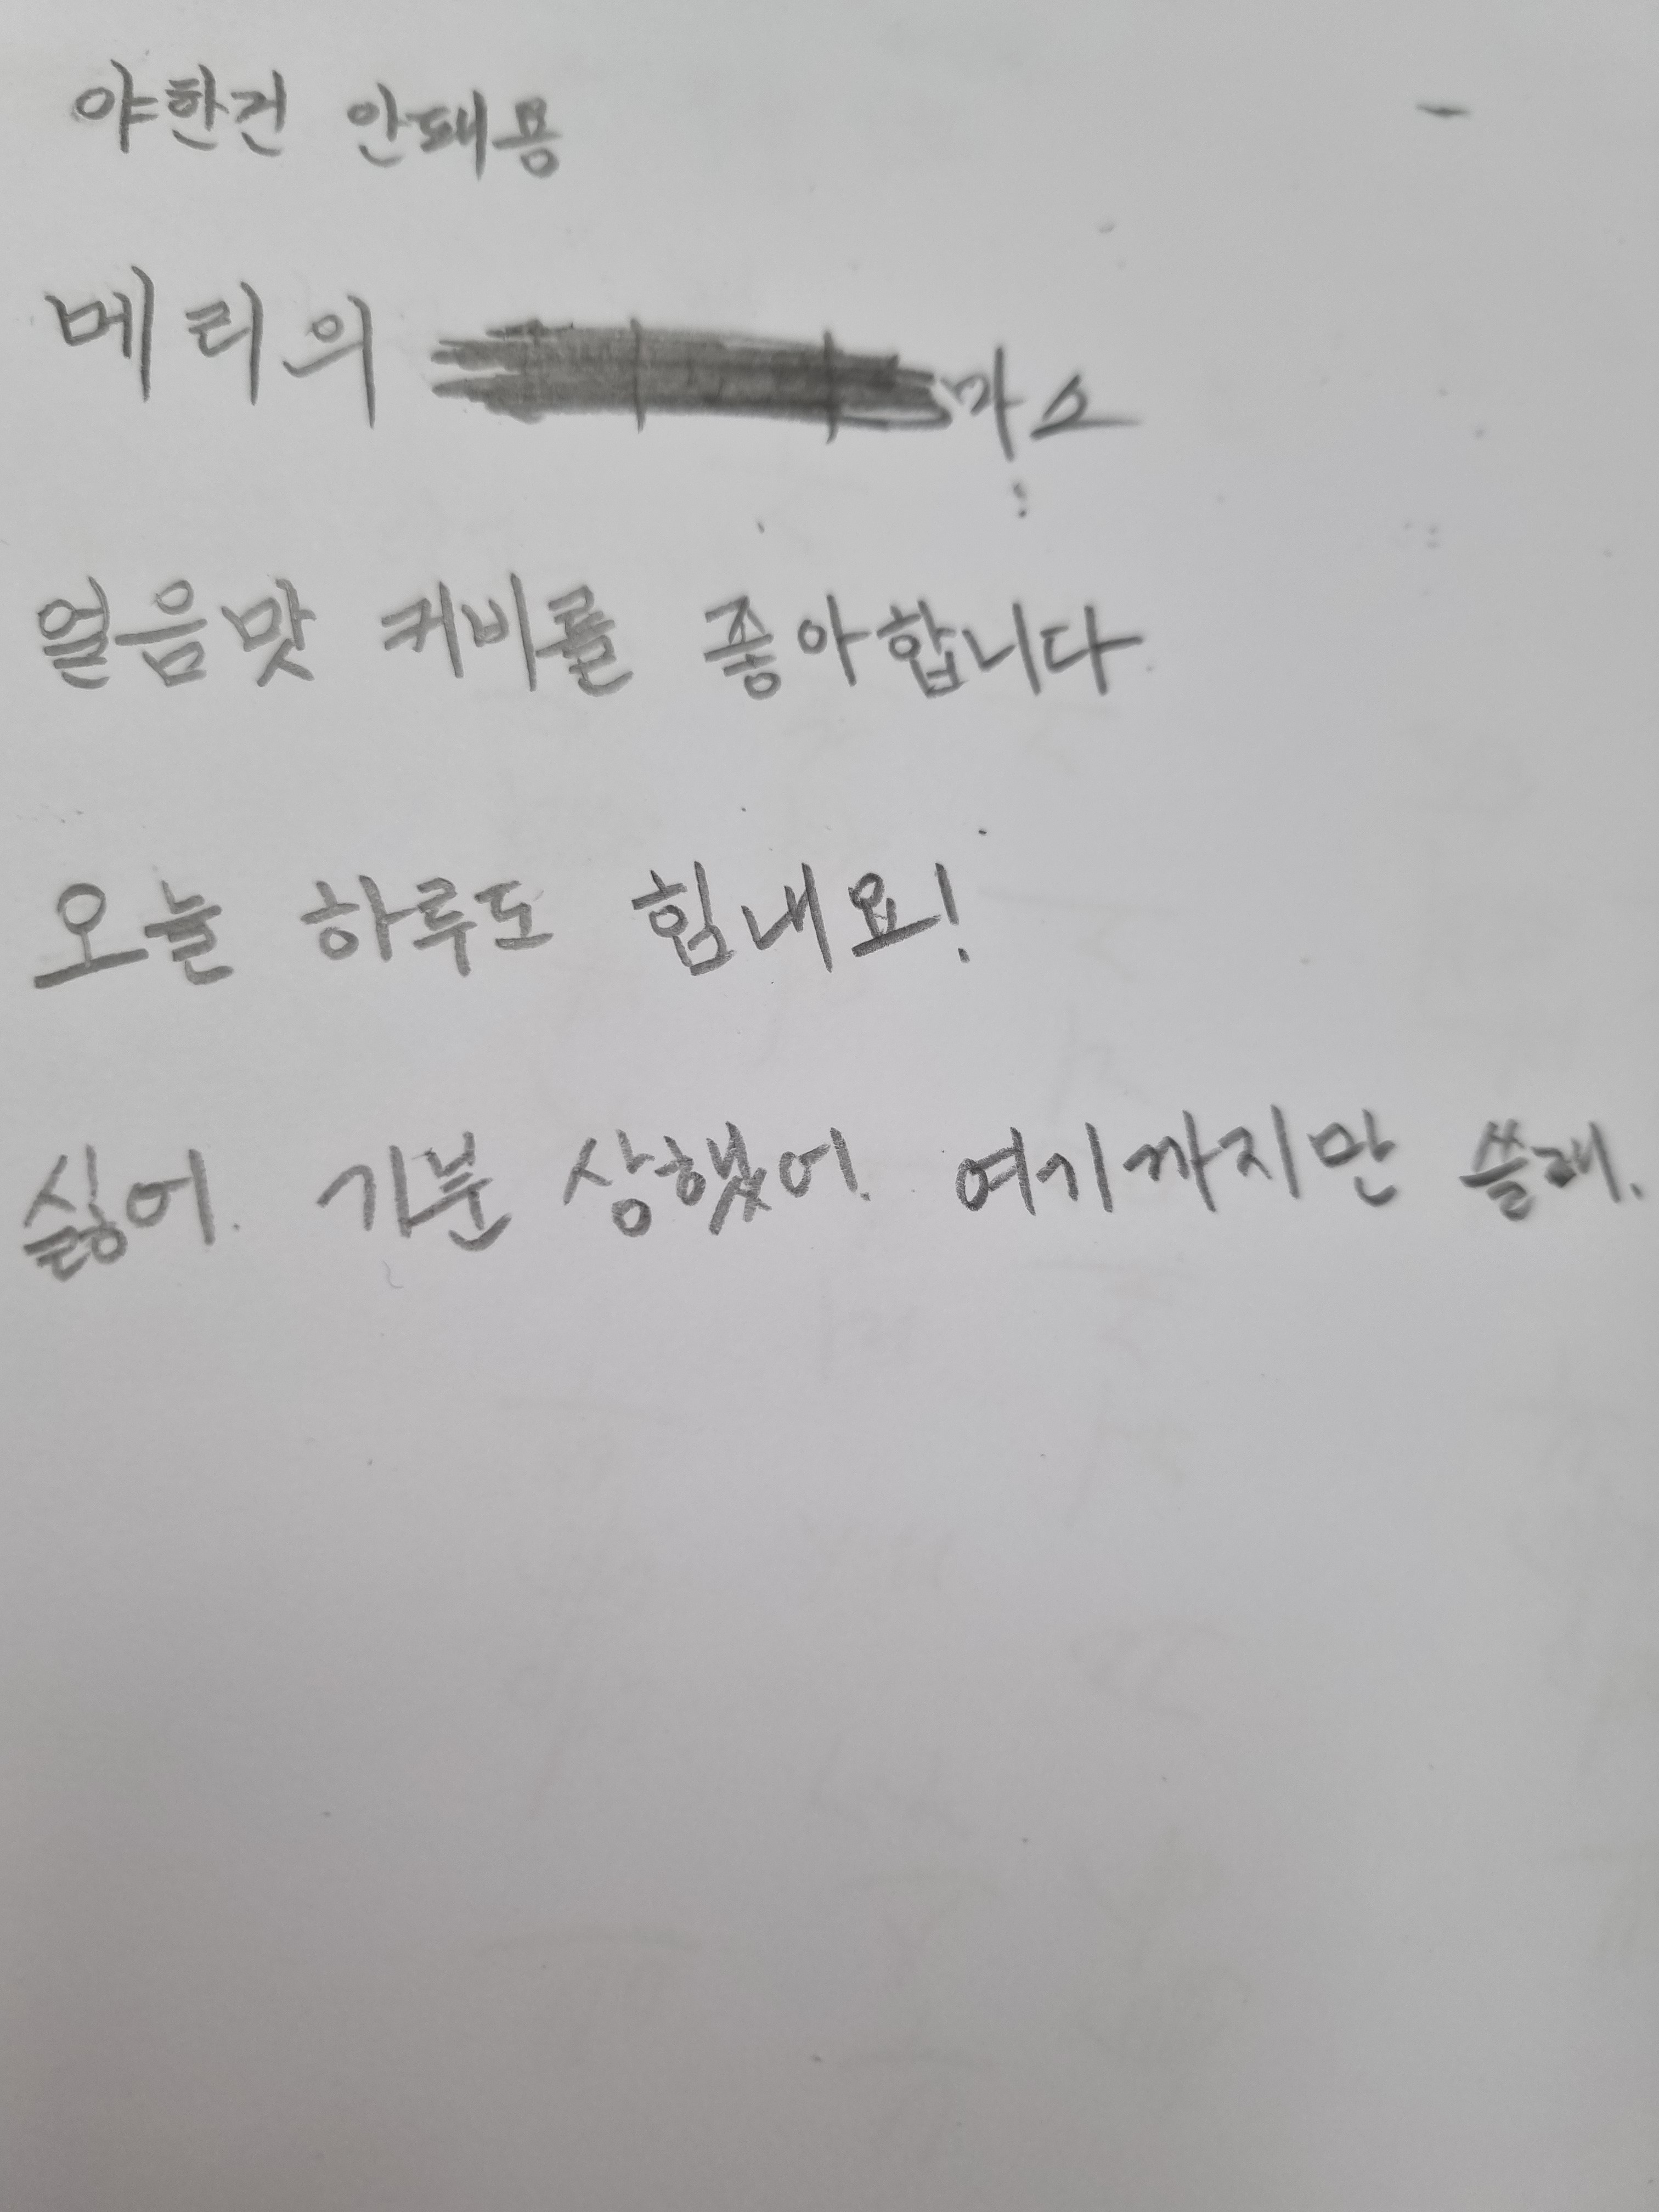 야한건 안돼용
메리의 마스
얼음맛 커비를 좋아합니다
오늘 하루도 힘내요!
싫어. 기분 상했어. 여기까지만 쓸래.